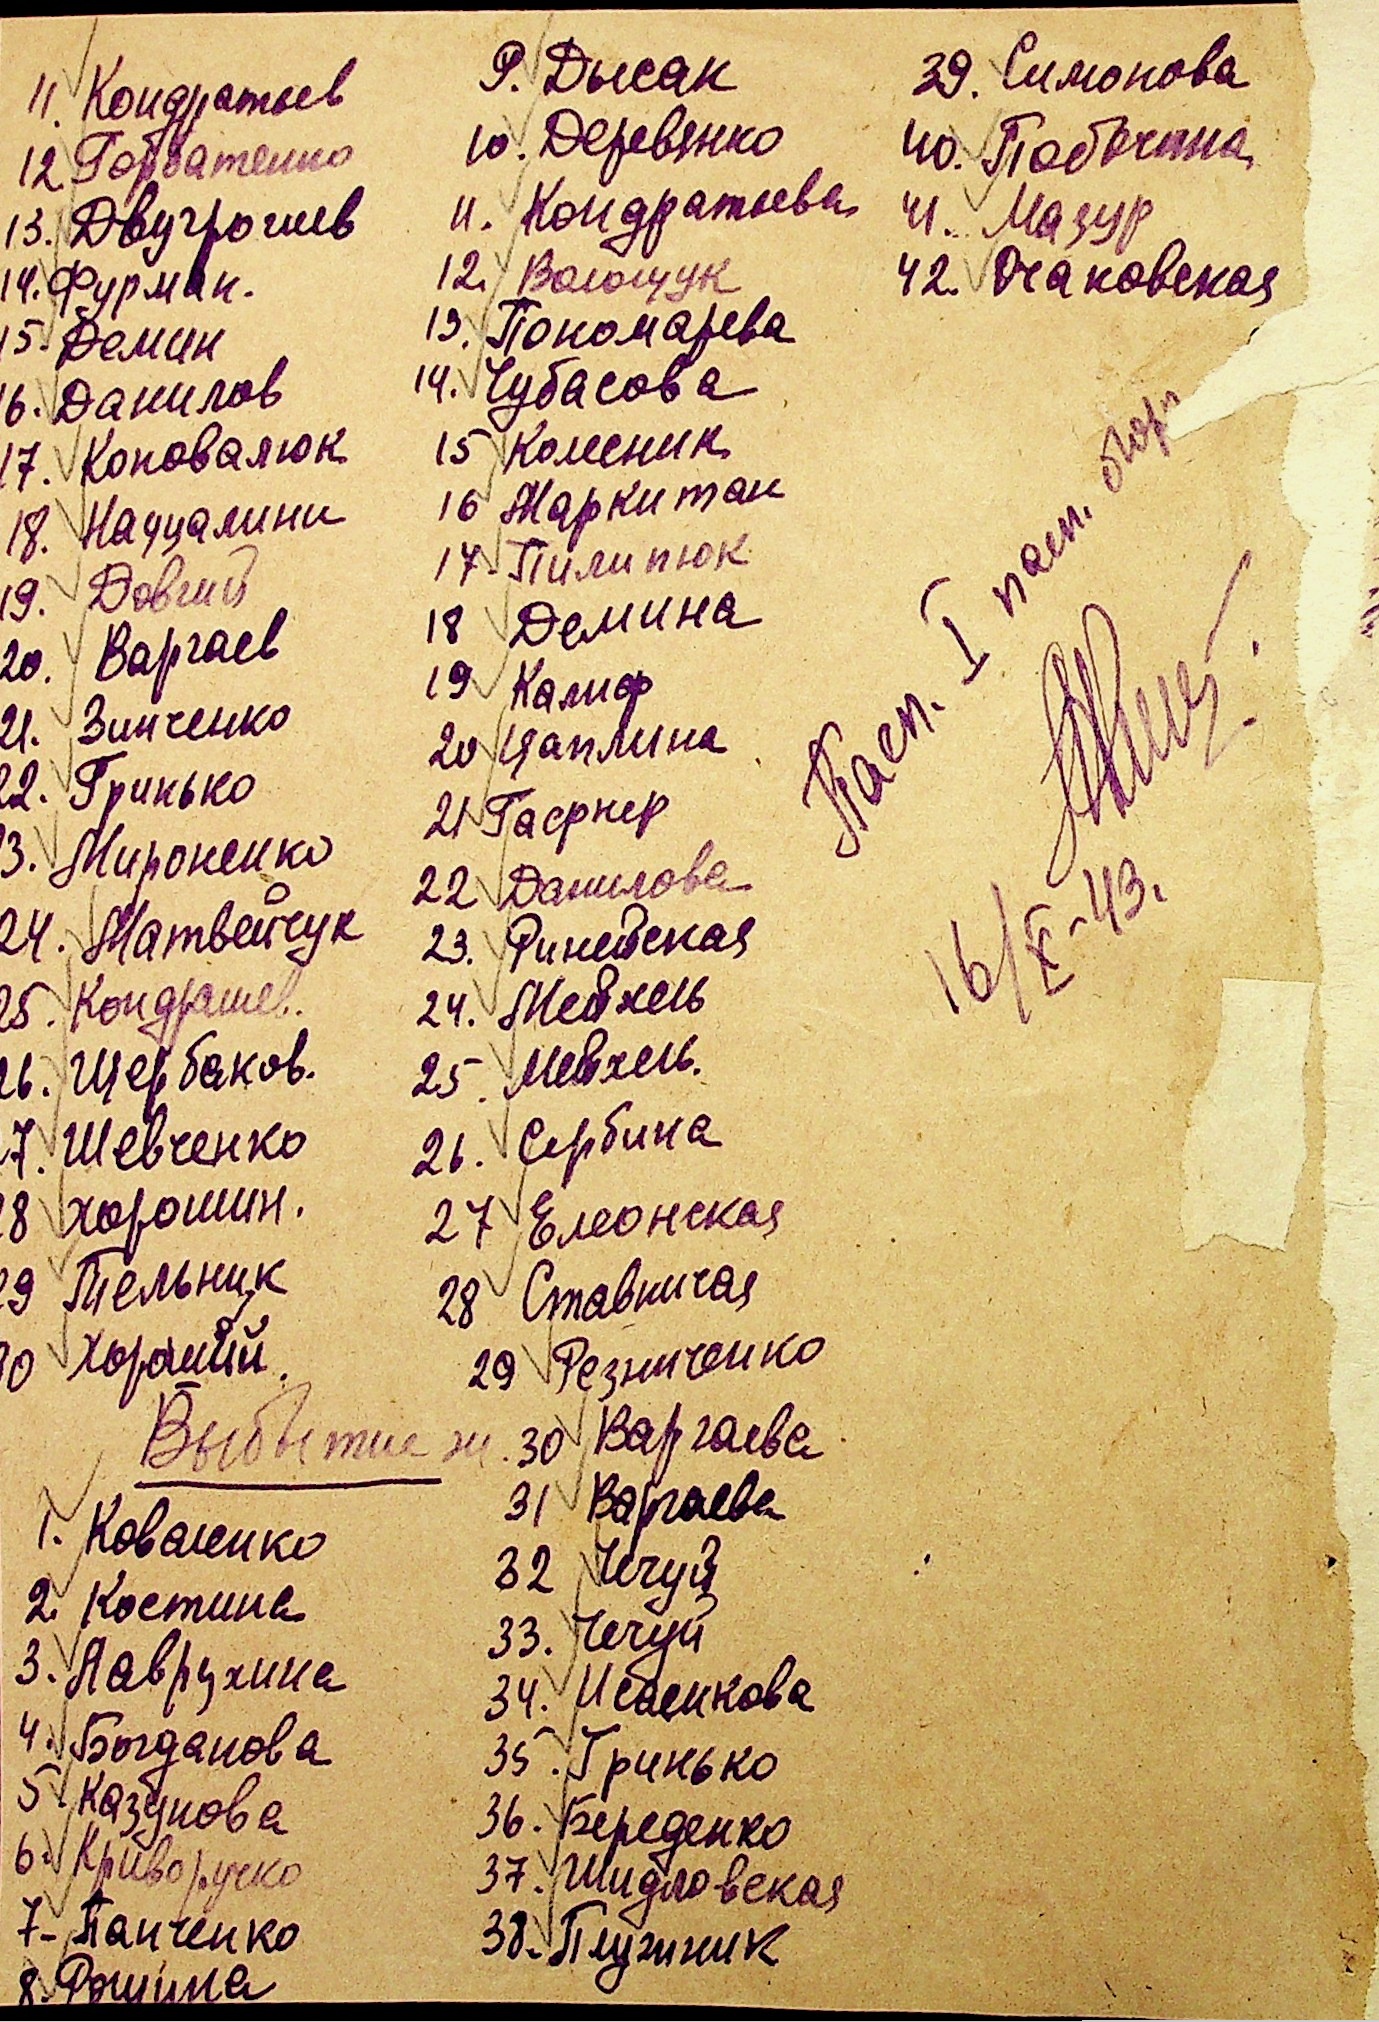 11. Кондратьев
12 Горбатенко
13. Двугрошев
14. Фурман.
15. Демин
16. Данилов
17. Коновалюк
18. Нацуалини
19. Довгий
20. Варгаев
21. Зинченко
22. Гринько
3. Мироненко
24. Матвейчук
25. Кондрашев.
26. Щербаков.
7. Шевченко
28 Хорошин.
29 Мельник
30 Хороший.
Выбытие ж.
1. Коваленко
2. Костина
3. Лаврухина
4. Богданова
5. Казунова
6. Криворучко
7- Панченко
8.
9. Дысак
10. Деревянко
11. Кондратьева
12. Волощук
13. Пономарева
14. Чубасова
15 Колесник
16 Маркитан
17- Пилипюк
18 Демина
19 Калиф
20 Цаплина
21 Гаернер
22 Данилова
23. Риневская
24. Мейхель
25. Мейхель.
26. Сербина
27 Елеонская
28 Ставничая
29 Резниченко
30 Варгаева
31 Варгаева
32 Чечуй
33. Чечуй
34. Исаенкова
35. Гринько
36. Береденко
37. Шидловская
38. Плужник
39. Симонова
40. Побочина
41. Мазур
42. Очаковская
Пасп. I пасп.
16/X-43.